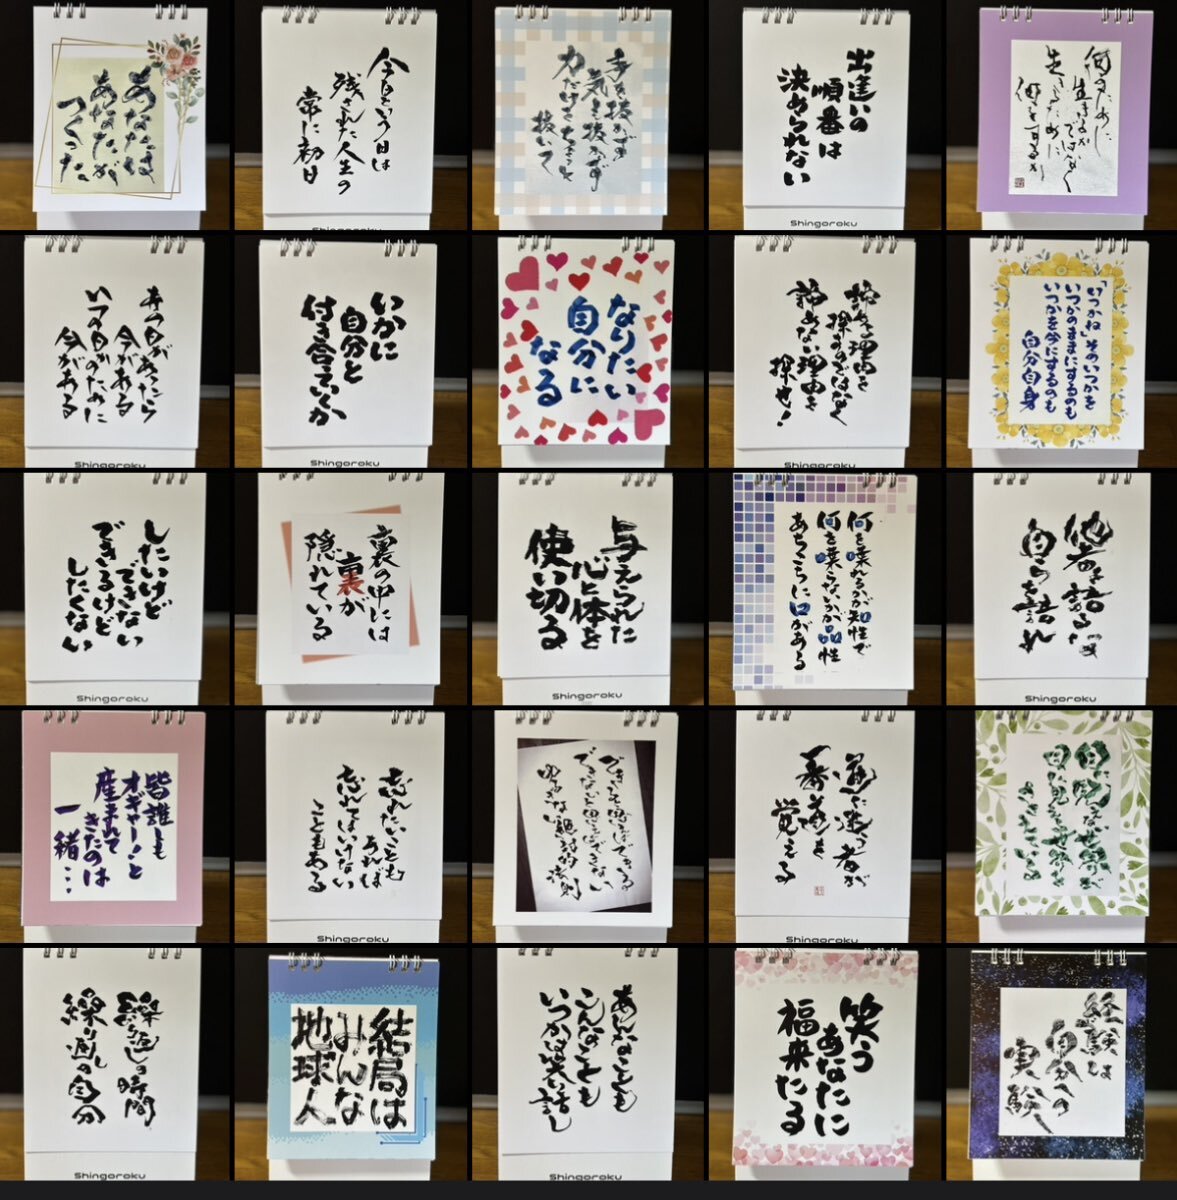 あなたは
あなたが
つくった
今日という日は
残された人生の
常に初日
手を抜かず
気を抜かず
力だけちょっと
抜いて
出逢いの
順番は
決められない
Shingoroku
何のために
生きるかではなく
生きるために
何をするか
昔の今日があったから
今がある
いつの日かのために
今がある
Shingoroku
いかに
自分と
付き合っていくか
Shingoroku
なりたい
自分に
なる
諦める理由を
探すのではなく
諦めない理由を
探せ!
Shingoroku
「いつかね」そのいつかを
いつかのままにするのも
いつかを今にするのも
自分自身
したいけど
できない
できるけど
したくない
Shingoroku
裏の中には
裏が
隠れている
与えられた
心と体を
使い切る
Shingoroku
何を喋れるかが知性で
何を喋らないかが品性
あちこちに口がある
他者を語るな
自らを語れ
Shingoroku
皆誰しも
オギャー!と
産まれて
きたのは
一緒…
忘れたいことも
あれば
忘れてはいけない
こともある
Shingoroku
できると思えばできる
できないと思えばできない
ゆるぎない絶対的法則
道に迷った者が
一番道を
覚える
Shingoroku
目に見えない世界が
目に見える世界を
繰り返しの時間
繰り返しの自分
Shingoroku
結局は
みんな
地球人
あんなことも
こんなことも
いつかは笑い話し
Shingoroku
笑う
あなたに
福来たる
経験は
自分への
実験